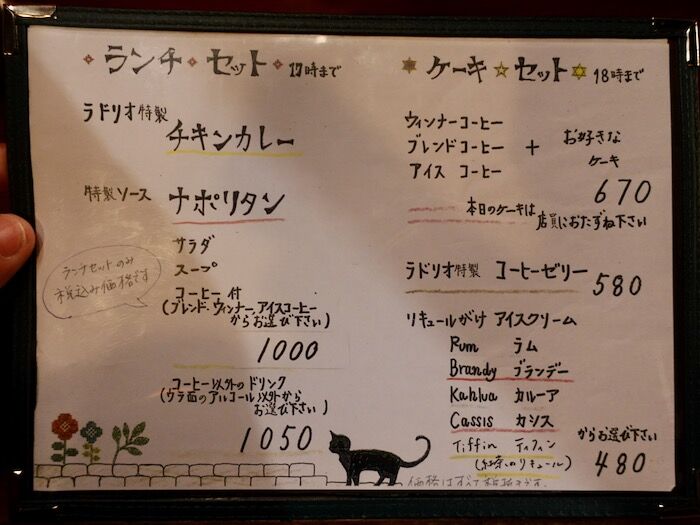 ランチ・セット 17時まで
ラドリオ特製
チキンカレー
特製ソース ナポリタン
サラダ
スープ
コーヒー付
(ブレンド・ウィンナー、アイスコーヒー
からお選び下さい)
1000
ランチセットのみ
税込み価格です
コーヒー以外のドリンク
(ウラ面のアルコール以外から
お選び下さい)
1050
ケーキ セット 18時まで
ウィンナーコーヒー
ブレンドコーヒー
アイス コーヒー
+
お好きな
ケーキ
670
本日のケーキは
店員におたずね下さい
ラドリオ特製 コーヒーゼリー 580
リキュールがけ アイスクリーム
Rum ラム
Brandy ブランデー
Kahlua カルーア
Cassis カシス
Tiffin ティフィン
(紅茶のリキュール)
からお選び下さい
480
価格はすべて税抜きです